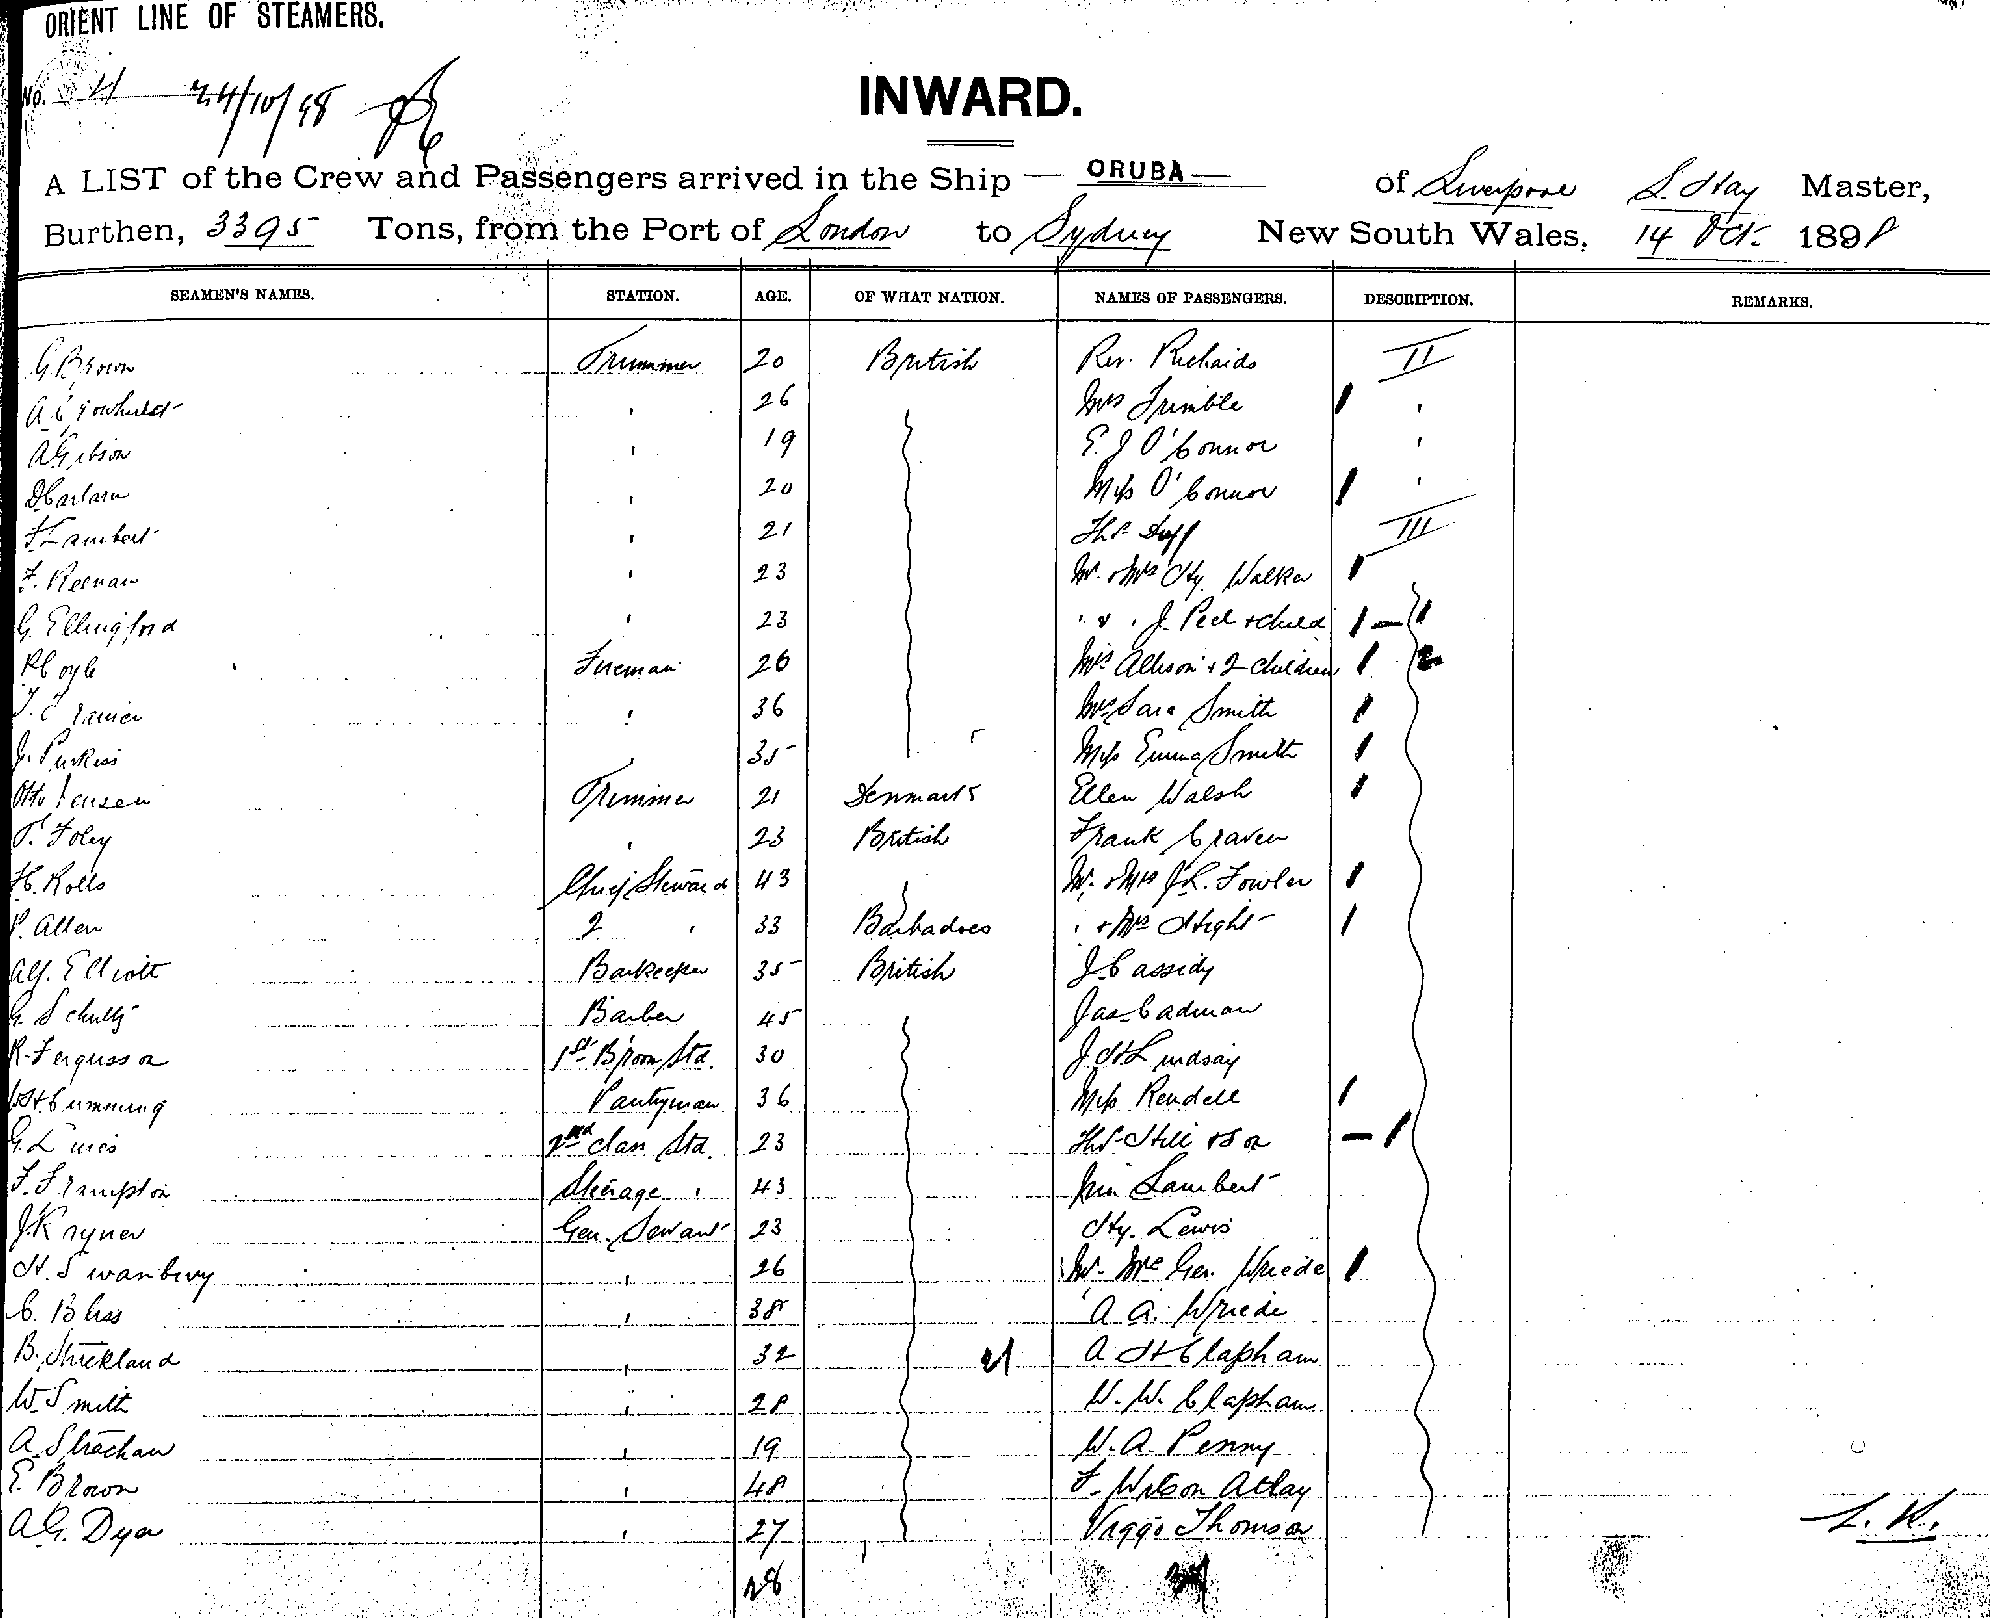 ORIENT LINE OF STEAMERS.
No. 24/10/98
INWARD.
A LIST of the Crew and Passengers arrived in the Ship — ORUBA — of Liverpool S. Hay Master,
Burthen, 3395 Tons, from the Port of London to Sydney New South Wales, 14 Oct. 1898
SEAMEN'S NAMES. STATION. AGE. OF WHAT NATION. NAMES OF PASSENGERS. DESCRIPTION. REMARKS.
G Brown Trimmer 20 British Rev. Richards II
26 Mrs Trimble
A Gibson 19 E. J O'Connor
20 Miss O'Connor
F Lambert 21 Thos Duff III
F. Keenan 23 Mr. & Mrs Hy. Walker
G. Ellingford 23 " & " J. Peel & child 1
P Coyle Fireman 26 Mrs Allison & 2 children 2
36 Mrs Sara Smith
J. Purkiss 35 Miss Emma Smith
Otto Jensen Trimmer 21 Denmark Ellen Walsh
T. Foley 23 British Frank Craven
H. Rolls Chief Steward 43 Mr. & Mrs Fowler
P. Allen 2 " 33 Barbadoes " & Mrs Hight
Alf. Elliott Barkeeper 35 British J. Cassidy
G. Schultz Barber 45 Jas Cadman
R. Fergusson 1st B'room Std. 30 J. H Lindsay
W H Cumming Pantryman 36 Miss Rendell
G. 2nd class Std. 23 Thos Hill & Son
F. Frampton Steerage " 43 Lambert
J. Rayner Gen. Servant 23 Hy. Lewis
H. Swanbury 26 Mr. Mrs Geo. Wriede
C. Bliss 38 A. A. Wriede
B. Strickland 32 A H Clapham
W. Smith 28 W. W. Clapham
A. Strachan 19 W. A. Penny
E. Brown 48 F. Wilson Atlay
A. G. Dyer 27 Viggo Thomson
28